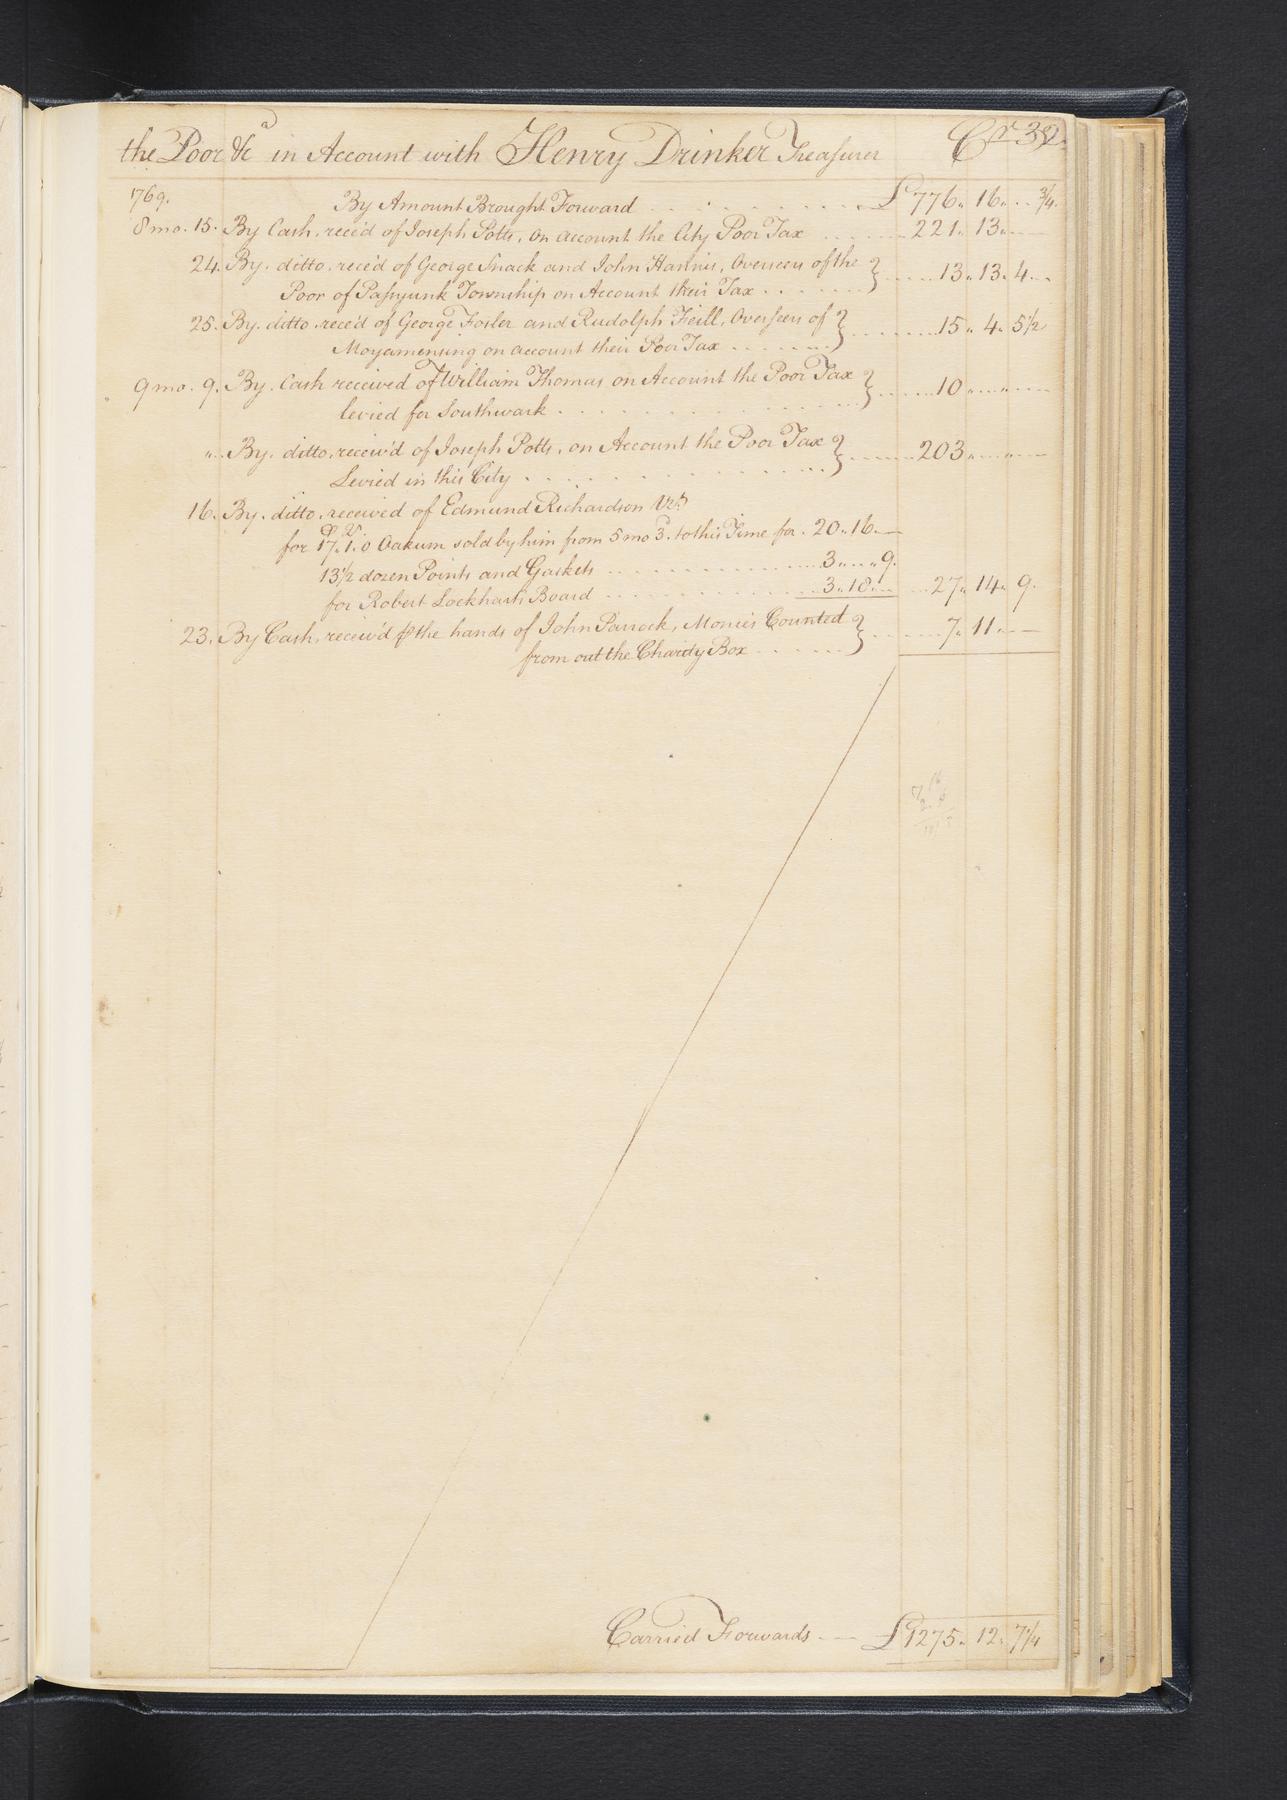 the Poor &c.a in Account with Henry Drinker Treasurer Cr 32.
769. By Amount Brought Forward £776.. 16.. 3/4
8 mo. 15. By Cash, rece'd of Joseph Potts, On account the City Poor Tax 221.. 13..
24. By. ditto, rece'd of George Snack and John Hannis, Overseers of the
Poor of Passyunk Township on Account their Tax 13.. 13.. 4
25. By. ditto rece'd of George Fosler and Rudolph Feill, Overseers of
Moyamensing on account their Poor Tax 15.. 4.. 5 1/2
9 mo. 9. By. Cash received of William Thomas on Account the Poor Tax
levied for Southwark 10
".. By. ditto, receiv'd of Joseph Potts, on Account the Poor Tax
Levied in this City 203
16. By. ditto, received of Edmund Richardson Vizt
for 17.. 1.. 0 Oakum sold by him from 5 mo 3. to this Time for 20.. 16..
13 1/2 dozen Points and Gaskets 3.. .. 9.
for Robert Lockharts Board 3.. 18.. 27.. 14.. 9.
23. By Cash, receiv'd ⅌ the hands of John Parrock, Monies Counted
from out the Charity Box 7.. 11..
Carried Forwards £1275.. 12.. 7 1/4